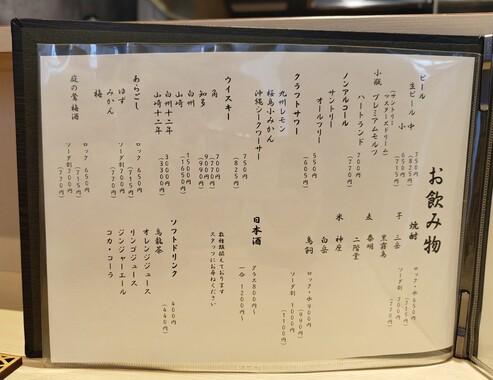 お飲み物
ビール
生ビール 中 750円
(825円)
小 650円
(715円)
(サントリー
マスターズドリーム)
小瓶 プレミアムモルツ
ハートランド 700円
(770円)
ノンアルコール
サントリー
オールフリー 550円
(605円)
クラフトサワー
九州レモン
桜島小みかん
沖縄シークワーサー
750円
(825円)
ウイスキー
角 700円
(770円)
知多 900円
(990円)
白州
山崎 1500円
(1650円)
白州十二年
山崎十二年 3000円
(3300円)
あらごし
ゆず
みかん
梅
ロック 650円
(715円)
ソーダ割 700円
(770円)
庭の鶯梅酒
ロック 650円
(715円)
ソーダ割 700円
(770円)
焼酎
三岳
黒霧島
ロック・水 650円
(715円)
ソーダ割 700円
(770円)
麦 泰明
二階堂
米
白岳
鳥飼
ロック・水 900円
(990円)
ソーダ割 1000円
(1100円)
日本酒
グラス800円〜
一合 1200円〜
数種類揃えております
スタッフにお尋ねください
ソフトドリンク
400円
(440円)
烏龍茶
オレンジジュース
リンゴジュース
ジンジャーエール
コカ・コーラ